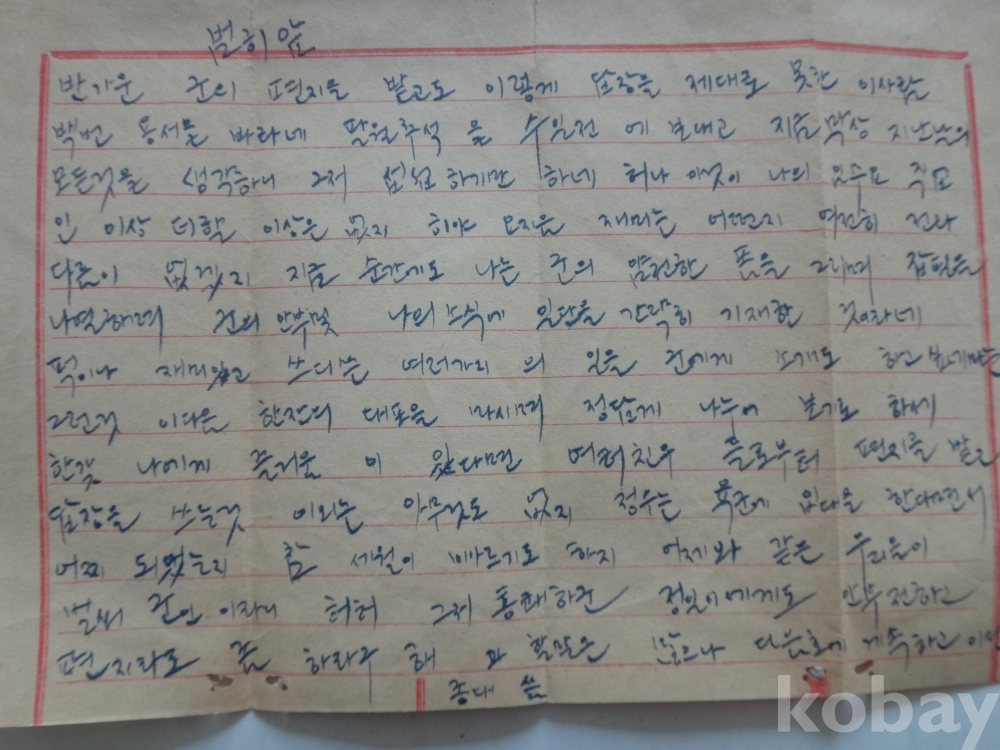 범희 앞
반가운 군의 편지를 받고도 이렇게 답장을 제대로 못한 이사람
백번 용서를 바라네 팔월추석 을 수일전 에 보내고 지금 막상 지난날의
모든것을 생각하니 그저 섭섭하기만 하네 허나 이것이 나의
인 이상 더할 이상은 없지 희야 요지음 재미는 어떤지 여전히 전과
다름이 없겠지 지금 순간에도 나는 군의 얌전한 폼을 그리며 잡필을
나열하며 군의 안부및 나의 소식에 일단을 간략히 기재한 것이라네
퍽이나 재미있고 쓰디쓴 여러가지 의 일을 군에게
그런것 이다음 한잔의 대포을 마시며 정답게 나누어 보기로 하세
한갖 나에게 즐거움 이 있다면 여러친우 들로부터 편지를 받고
답장을 쓰는것 이외는 아무것도 없지 정우는 육군에 입대을 한다면서
어찌 되었는지 참 세월이 빠르기도 하지 어제와 같은 우리들이
벌써 군인 이라니 허허 그저 통쾌하군 에게도 안부 전하고
편지라도 좀 하라구 해 할말은 많으나 다음호에 계속하고
종대 씀
kobay